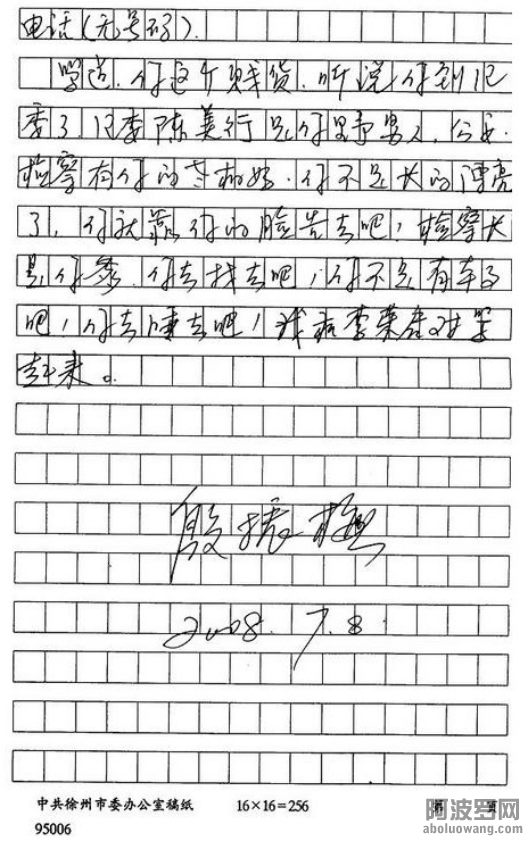 电话(无号码).
骂道.你这个贱货.听说你到纪
委了,纪委陈美行是你野男人,公安.
检察有你的老相好.你不是长的漂亮
了,你就靠你的脸告去吧,检察长
是你爹.你去找去吧,你不是有车子
吧,你去睡去吧,我和李荣启对骂
起来。
殷振
2008.7.8
中共徐州市委办公室稿纸 16×16=256 第 页
95006
阿波罗网
aboluowang.com